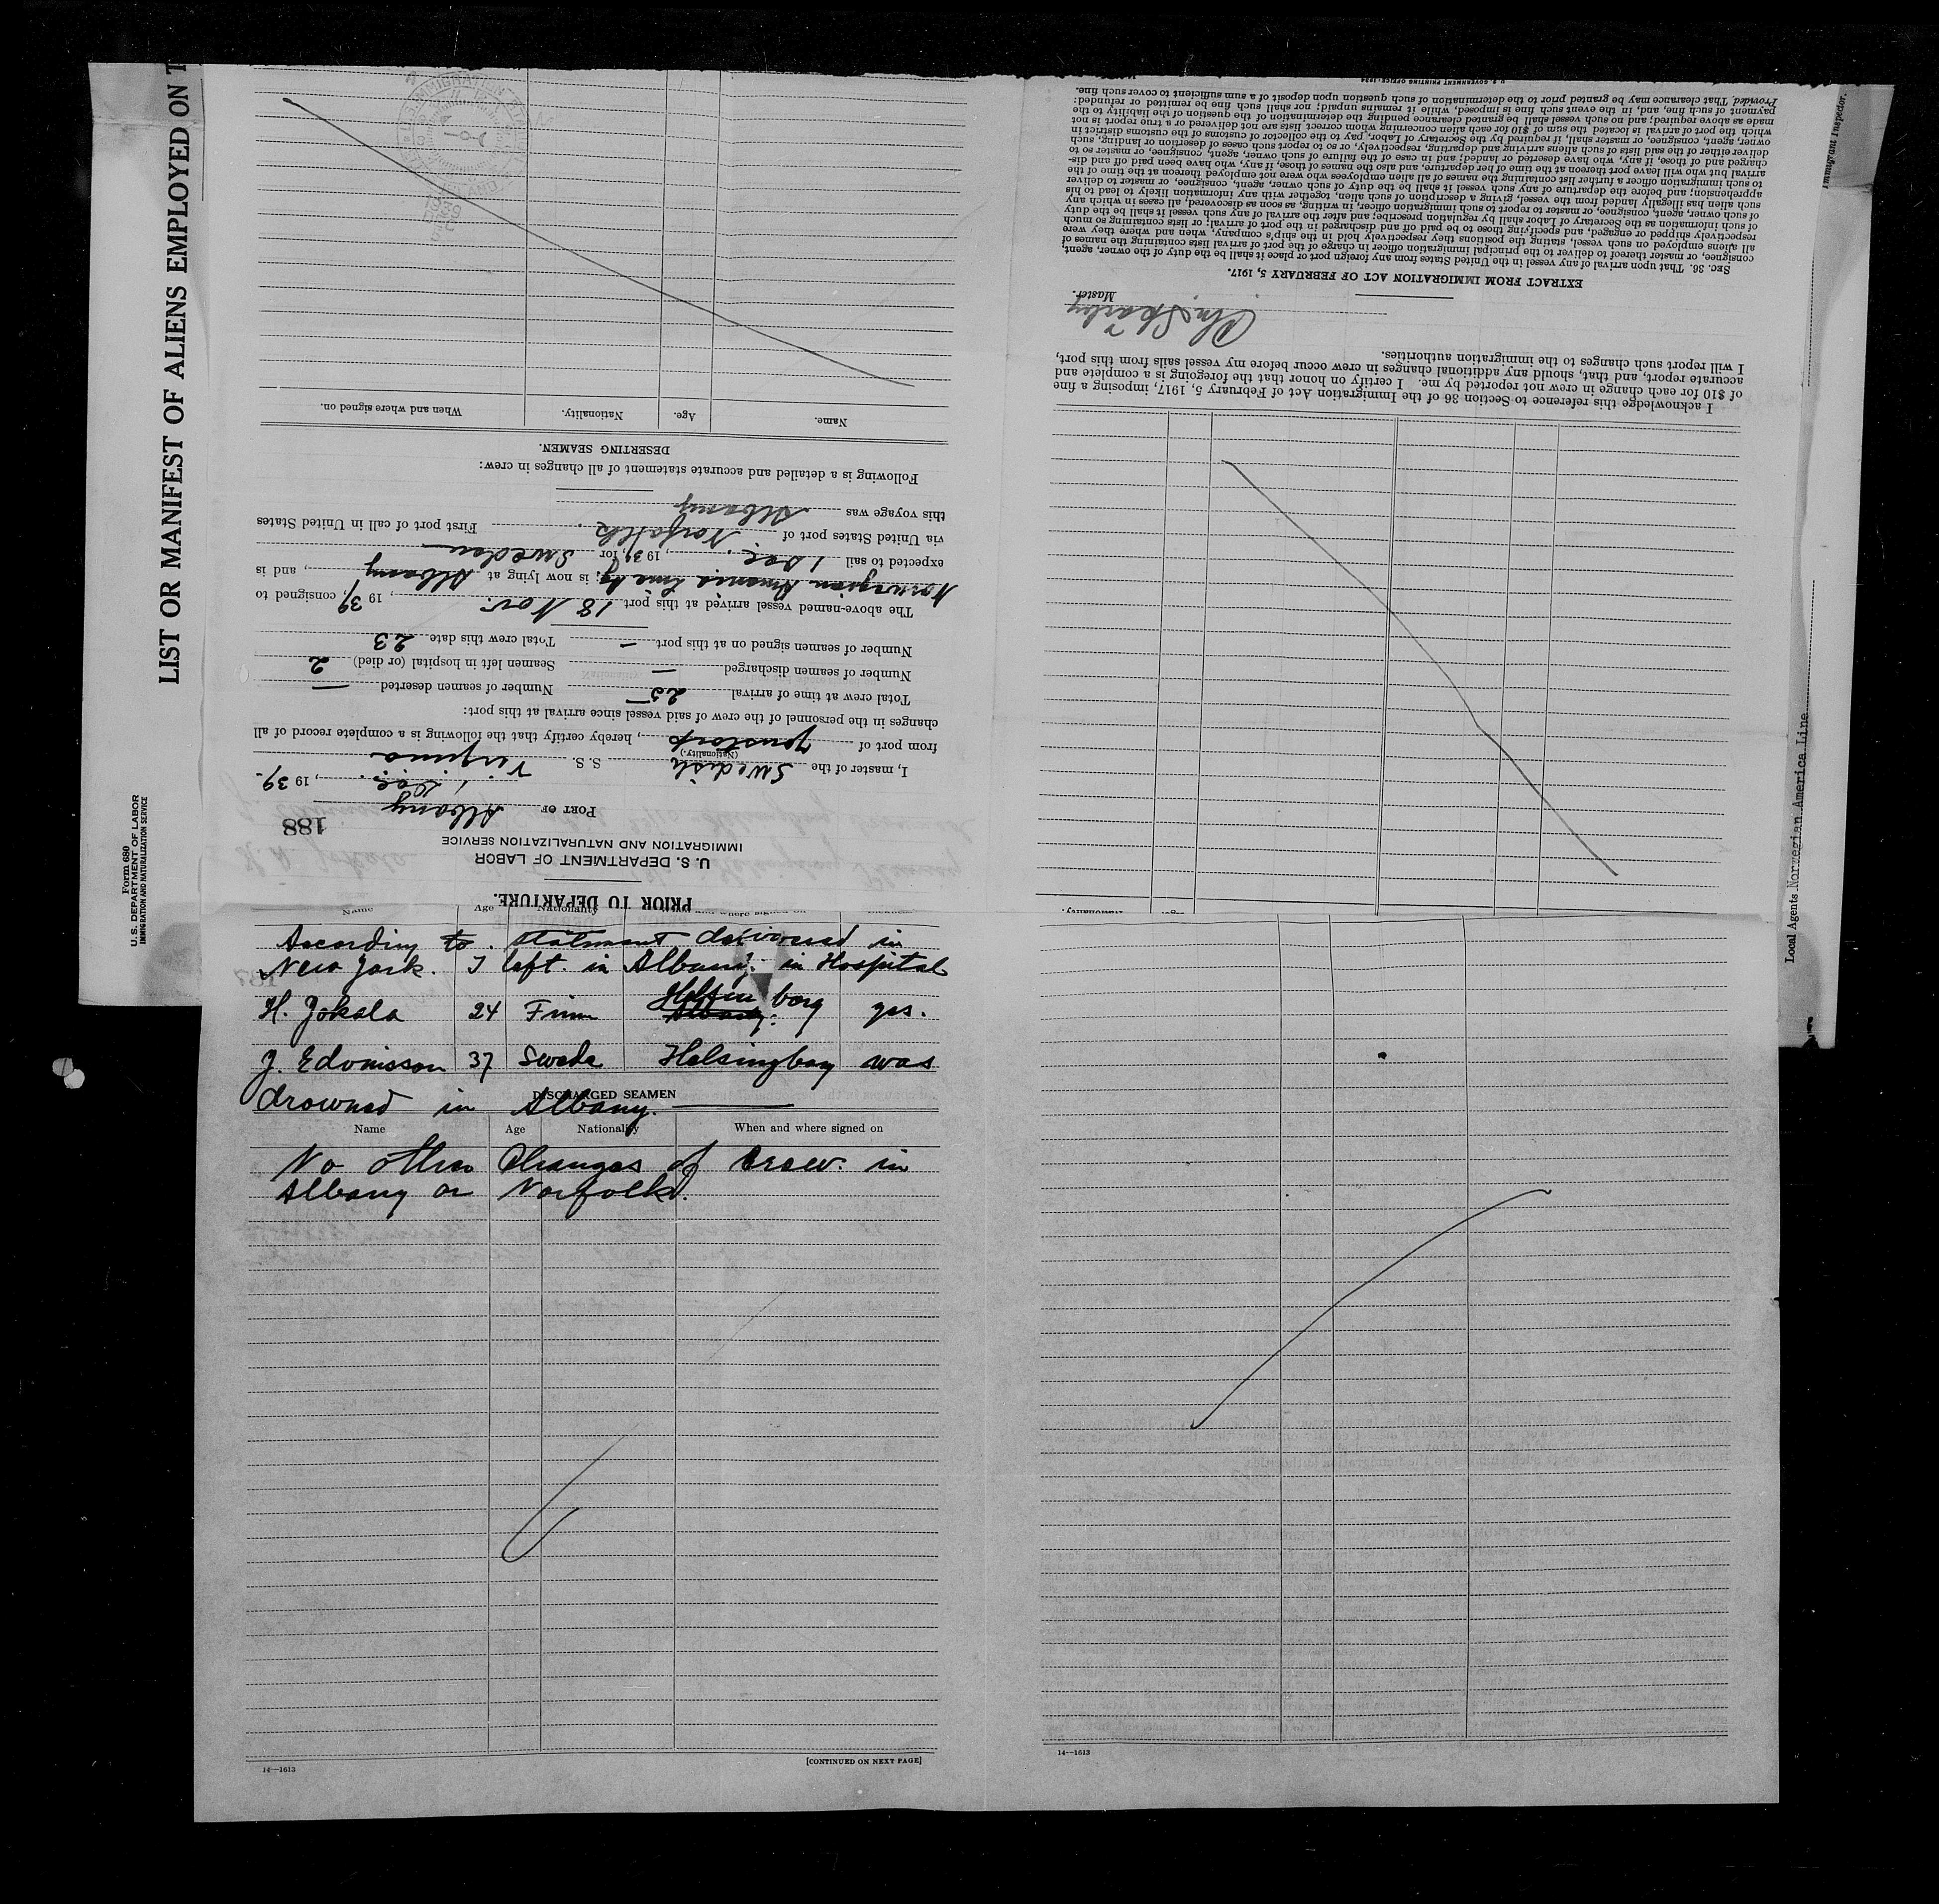 LIST OR MANIFEST OF ALIENS EMPLOYED ON T
Form 680
U. S. DEPARTMENT OF LABOR
IMMIGRATION AND NATURALIZATION SERVICE
PRIOR TO DEPARTURE.
U. S. DEPARTMENT OF LABOR
IMMIGRATION AND NATURALIZATION SERVICE
188
PORT OF Albany
1 Dec., 1939.
I, master of the Swedish S. S. Virginia
(Nationality.)
from port of Jonstorp, hereby certify that the following is a complete record of all
changes in the personnel of the crew of said vessel since arrival at this port:
Total crew at time of arrival 25 Number of seamen deserted —
Number of seamen discharged — Seamen left in hospital (or died) 2
Number of seamen signed on at this port — Total crew this date 23
The above-named vessel arrived at this port 18 Nov., 1939, consigned to
Norwegian America Line, is now lying at Albany, and is
expected to sail 1 Dec., 1939, for Sweden
via United States port of Norfolk. First port of call in United States
this voyage was Albany
Following is a detailed and accurate statement of all changes in crew:
DESERTING SEAMEN.
Name. Age. Nationality. When and where signed on.
I acknowledge this reference to Section 36 of the Immigration Act of February 5, 1917, imposing a fine
of $10 for each change in crew not reported by me. I certify on honor that the foregoing is a complete and
accurate report, and that, should any additional changes in crew occur before my vessel sails from this port,
I will report such changes to the immigration authorities.
Master.
EXTRACT FROM IMMIGRATION ACT OF FEBRUARY 5, 1917.
SEC. 36. That upon arrival of any vessel in the United States from any foreign port or place it shall be the duty of the owner, agent,
consignee, or master thereof to deliver to the principal immigration officer in charge of the port of arrival lists containing the names of
all aliens employed on such vessel, stating the positions they respectively hold in the ship's company, when and where they were
respectively shipped or engaged, and specifying those to be paid off and discharged in the port of arrival; or lists containing so much
of such information as the Secretary of Labor shall by regulation prescribe; and after the arrival of any such vessel it shall be the duty
of such owner, agent, consignee, or master to report to such immigration officer, in writing, as soon as discovered, all cases in which any
such alien has illegally landed from the vessel, giving a description of such alien, together with any information likely to lead to his
apprehension; and before the departure of any such vessel it shall be the duty of such owner, agent, consignee, or master to deliver
to such immigration officer a further list containing the names of all alien employees who were not employed thereon at the time of the
arrival but who will leave port thereon at the time of her departure, and also the names of those, if any, who have been paid off and dis-
charged and of those, if any, who have deserted or landed; and in case of the failure of such owner, agent, consignee, or master so to
deliver either of the said lists of such aliens arriving and departing, respectively, or so to report such cases of desertion or landing, such
owner, agent, consignee, or master shall, if required by the Secretary of Labor, pay to the collector of customs of the customs district in
which the port of arrival is located the sum of $10 for each alien concerning whom correct lists are not delivered or a true report is not
made as above required; and no such vessel shall be granted clearance pending the determination of the question of the liability to the
payment of such fine, and, in the event such fine is imposed, while it remains unpaid; nor shall such fine be remitted or refunded:
Provided, That clearance may be granted prior to the determination of such question upon deposit of a sum sufficient to cover such fine.
U. S. GOVERNMENT PRINTING OFFICE: 1934
Immigrant Inspector.
Local Agents Norwegian America Line
Name Age Nationality
According to. statment delivered in
New York. I left. in Albany. in Hospital
H. Jokela 24 Finn Helsingborg yes.
J. Edonisson 37 Swede Helsingborg was
DISCHARGED SEAMEN
drowned in Albany.
Name Age Nationality When and where signed on
No other Changes of Crew. in
Albany or Norfolk.
14—1613
[CONTINUED ON NEXT PAGE]
14—1613